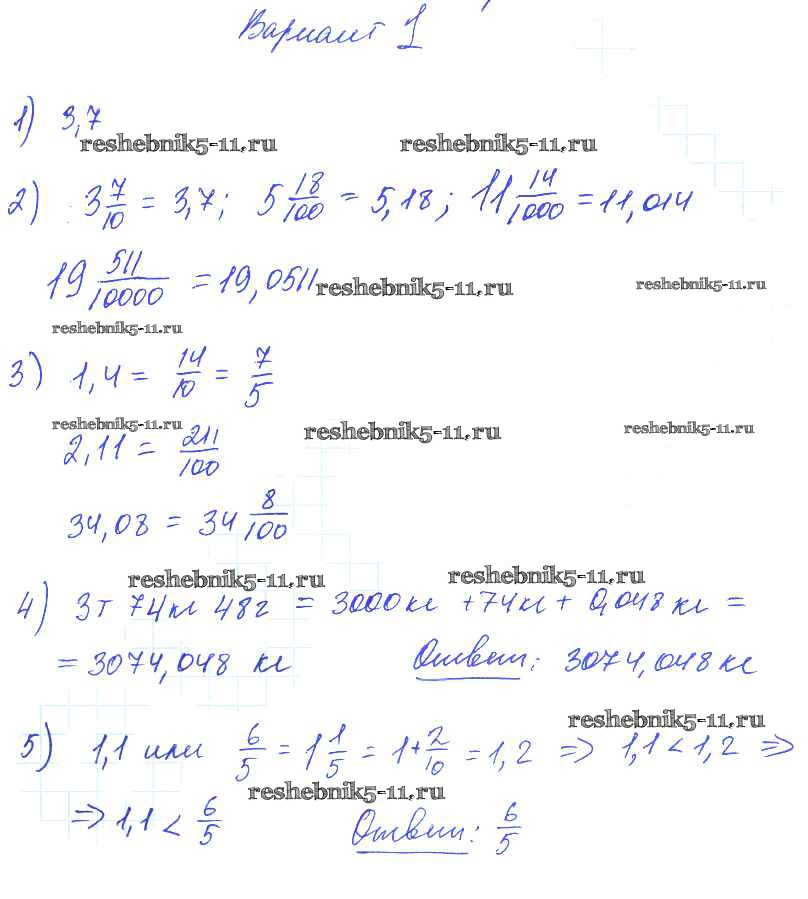 Вариант 1
1) 3,7
reshebnik5-11.ru reshebnik5-11.ru
2) 3 7/10 = 3,7; 5 18/100 = 5,18; 11 14/1000 = 11,014
19 511/10000 = 19,0511
reshebnik5-11.ru reshebnik5-11.ru
reshebnik5-11.ru
3) 1,4 = 14/10 = 7/5
reshebnik5-11.ru reshebnik5-11.ru reshebnik5-11.ru
2,11 = 211/100
34,08 = 34 8/100
reshebnik5-11.ru reshebnik5-11.ru
4) 3т 74кг 48г = 3000кг + 74кг + 0,048 кг =
= 3074,048 кг Ответ: 3074,048 кг
reshebnik5-11.ru
5) 1,1 или 6/5 = 1 1/5 = 1+2/10 = 1,2 => 1,1 < 1,2 =>
reshebnik5-11.ru
=> 1,1 < 6/5 Ответ: 6/5